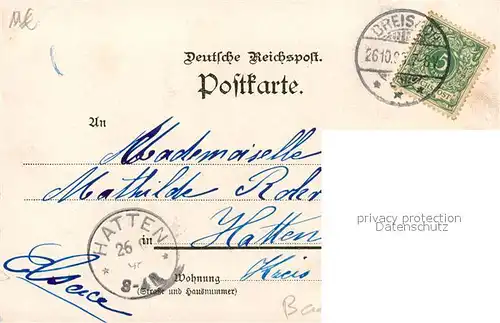 Deutsche Reichspost.
Postkarte.
BREISACH
26 10 9
5
An
Mademoiselle
Mathilde
in Hatten
HATTEN
26
8-
Elsace
Kreis
Wohnung
(Straße und Hausnummer)
privacy protection
Datenschutz